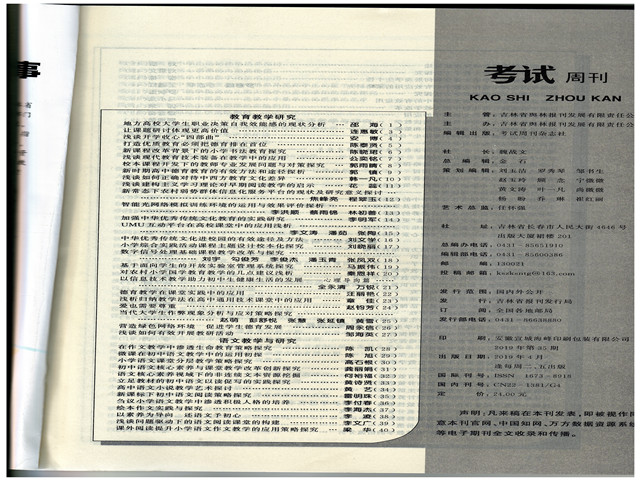 事
教育教学研究
地方高校大学生职业决策自我效能感的现状分析 邵 海( 1 )
让课题研讨体现更高价值 连惠敏( 3 )
浅谈开学收心“四部曲” 安 博( 4 )
打造优质教育必须把德育排在首位 陈泰贤( 5 )
新课程改革背景下的小学书法教育探究 陈晓珺( 6 )
浅谈现代教育技术装备在教学中的应用 公奕郁( 7 )
校本课程开发下的教师专业发展问题与对策探究 郭雨晴( 8 )
新时期高中德育教育的有效方法和途径探析 郭 镇( 9 )
浅谈如何正确对待中西方教育文化差异 韩一凡( 10 )
浅谈建构主义学习理论对早期阅读教学的启示 花 蕊( 11 )
新常态下农村弱势群体信息化服务平台的现状及研究意义探讨
焦峰亮 程翠玉( 12 )
智能光网络模拟训练环境的运用与效果评价探析
李洪顺 蔡雨锦 林初善( 13 )
加强中华优秀传统文化教育的实践研究 李明军( 14 )
UMU互动平台在高校课堂中的应用浅析
李文涛 潘茹 张陶( 15 )
中华优秀传统文化进校园的有效途径及方法 刘文学( 16 )
小学综合实践活动课程主题设计校本化探究 刘晓丽( 17 )
数字信号处理基础课程教学改革与探究
刘宇 勾俊芳 李俊杰 潘玉青 张凤双( 18 )
基于面向学生的开放实验室管理系统探究 马振伟( 19 )
对农村小学国学教育教学的几点建议浅析 乘恩祥( 20 )
以信息技术教学助力和中生健康生活的发展
全永清 万锐( 21 )
德育教育在课堂实践中的应用 汪丽艳( 22 )
浅析归纳教学法在高中通用技术课堂中的应用 章 佳( 23 )
爱也需要尊重 赵钧芳( 24 )
当代大学生作弊现象分析与应对策略探究
赵萌 彭舒悦 张慧 张延镇 黄雪( 25 )
营造绿色网络环境 促进学生德育发展 周永信( 26 )
浅谈如何有效开展教研活动 邹海英( 27 )
语文教学与研究
在作文教学中渗透生命教育策略探究 陈 凯( 28 )
微课在初中语文教学中的运用初探 陈 旭( 29 )
小学语文课堂分层教学策略探究 高石根( 30 )
初中语文核心素养与课堂教学改革创新探究 龚丽娟( 31 )
语文核心素养视域下的非连续文本资源挖掘 何裕福( 32 )
立足教材的初中语文以读促写的实践探究 黄诗贤( 33 )
高中语文小说教学艺术探讨 黄 艺( 34 )
新课标下初中语文阅读策略探究 雷明珠( 35 )
刍议小学语文教学中渗透积极人格的培养 李付春( 36 )
绘本作文实践与探究 李海杰( 37 )
以素养为导 述语文于初心 李 凌( 38 )
浅谈问题驱动下的语文阅读课堂的构建 李文广( 39 )
课外阅读提升小学语文作文教学的应用策略探究 梁 华( 40 )
考试 周刊
KAO SHI ZHOU KAN
主 管：吉林省舆林报刊发展有限责任公
主 办：吉林省舆林报刊发展有限责任公
编辑出版：考试周刊杂志社
社 长：魏战文
总 编 辑：金 石
策 划 编 辑：刘玉洁 邓秀琴 邹书生
黄文涛 叶一凡
杨 盼 乔 琳 崔红丽
艺术总监：任怀强
社 址：吉林省长春市人民大街4646号
出版大厦裙楼201
总编办电话：0431-85651910
编辑部电话：0431-85600386
邮 编：130021
投稿邮箱：kszkong@163.com
发行范围：国内外公开
发 行：吉林省报刊发行局
订 阅：全国各地邮局
发行部电话：0431-85638880
印 刷：安徽宣城海峰印刷包装有限公司
2019年第35期
出版日期：2019年4月
逢每周二、五出版
国际刊号：ISSN 1673-8918
国内刊号：CN22-1381/G4
定 价：24.00元
声明：凡来稿在本刊发表，即被视作
意本刊官网、中国知网、万方数据资源系统
等电子期刊全文收录和传播。